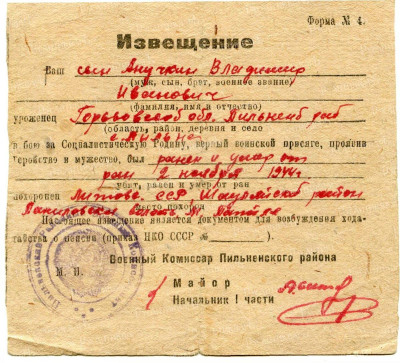 Форма № 4.
Извещение
Ваш сын Анучкин Владимир
(муж, сын, брат, военное звание)
Иванович
(фамилия, имя и отчество)
уроженец Горьковской обл. Пильненск. рай
(область, район, деревня и село
с. Пильна
в бою за Социалистическую Родину, верный воинской присяге, проявив
геройство и мужество, был ранен и умер от
ран 2 ноября 1944 г.
убит, ранен и умер от ран
похоронен Литовск. ССР район
место похорон
Настоящее извещение является документом для возбуждения хода-
тайства о пенсии (приказ НКО СССР №
М. П.
Военный Комиссар Пильненского района
Майор
Начальник 1 части